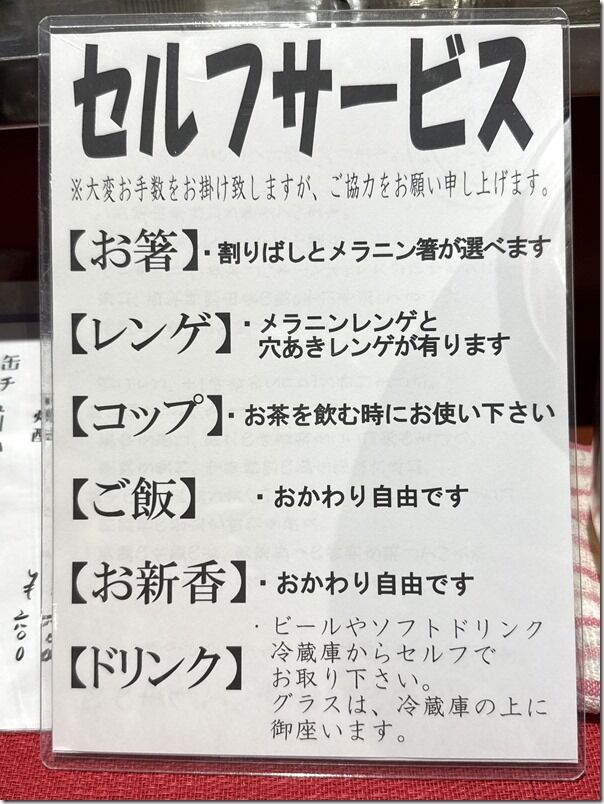 セルフサービス
※大変お手数をお掛け致しますが、ご協力をお願い申し上げます。
【お箸】・割りばしとメラニン箸が選べます
【レンゲ】・メラニンレンゲと
穴あきレンゲが有ります
【コップ】・お茶を飲む時にお使い下さい
【ご飯】・おかわり自由です
【お新香】・おかわり自由です
【ドリンク】・ビールやソフトドリンク
冷蔵庫からセルフで
お取り下さい。
グラスは、冷蔵庫の上に
御座います。
缶
チ